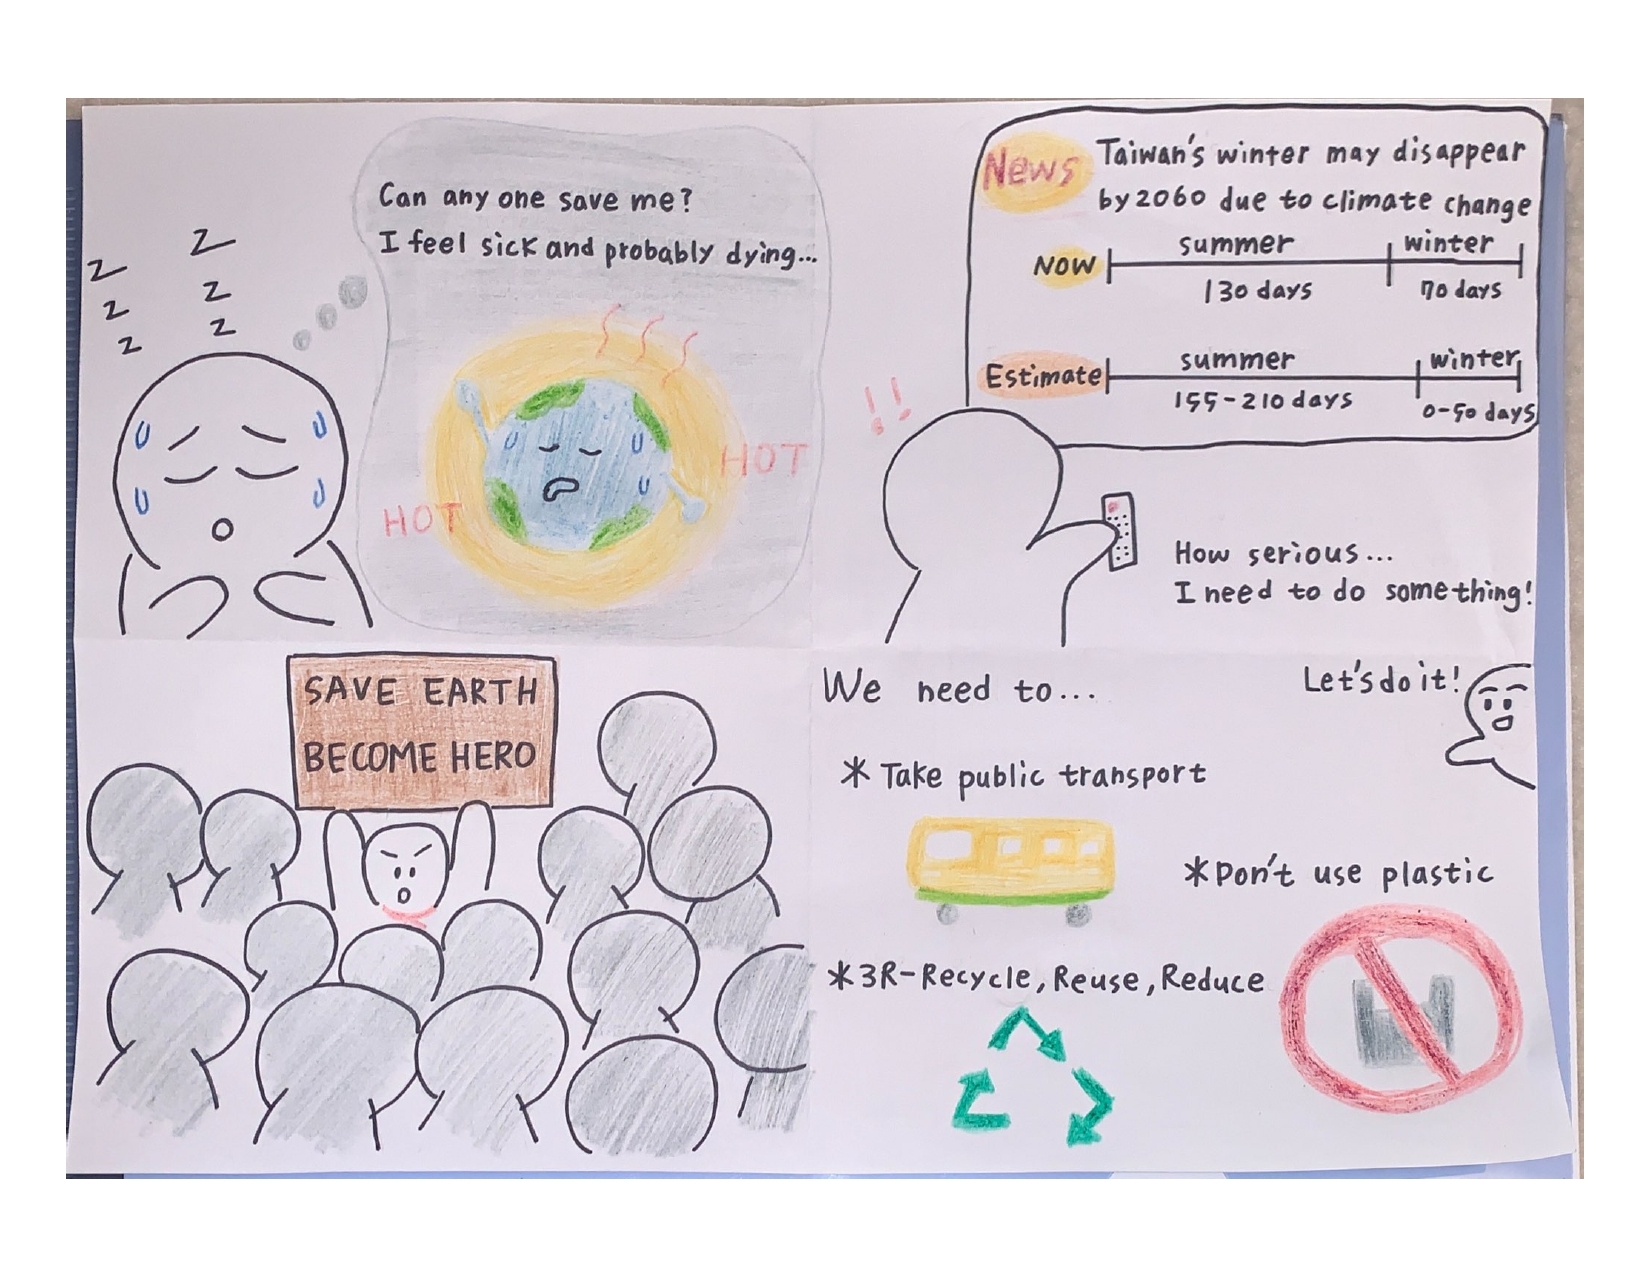 Z
Z
Z
Z
Z
Z
Can any one save me?
I feel sick and probably dying...
HOT
HOT
News
Taiwan's winter may disappear
by 2060 due to climate change
NOW
summer
winter
130 days
70 days
Estimate
summer
winter
155-210 days
0-50 days
!!
How serious...
I need to do something!
SAVE EARTH
BECOME HERO
We need to...
Let's do it!
* Take public transport
* Don't use plastic
* 3R-Recycle, Reuse, Reduce